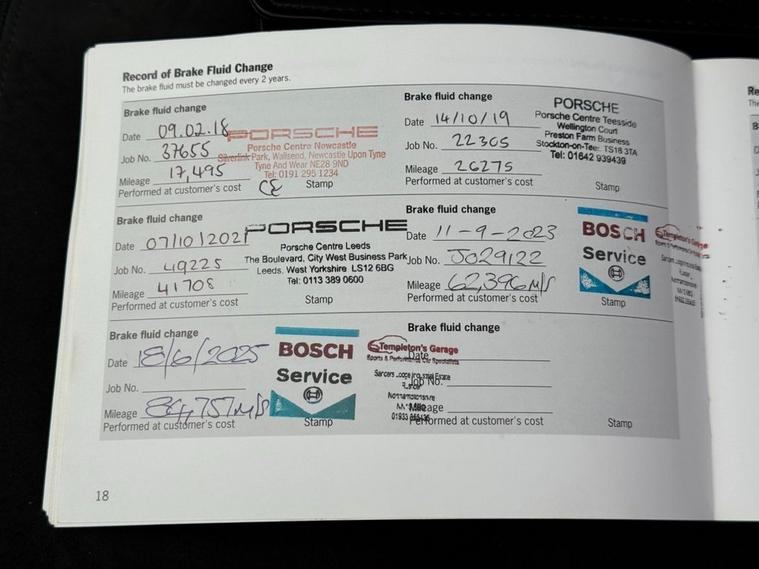 Record of Brake Fluid Change
The brake fluid must be changed every 2 years.
Brake fluid change
Date 09.02.18
Job No. 37655
Mileage 17,495
Performed at customer's cost
CE
Stamp
PORSCHE
Porsche Centre Newcastle
Silverlink Park, Wallsend, Newcastle Upon Tyne
Tyne And Wear NE28 9ND
Tel: 0191 295 1234
Brake fluid change
Date 14/10/19
Job No. 22305
Mileage 26275
Performed at customer's cost
Stamp
PORSCHE
Porsche Centre Teesside
Wellington Court
Preston Farm Business
Stockton-on-Tee: TS18 3TA
Tel: 01642 939439
Brake fluid change
Date 07/10/2021
Job No. 49225
Mileage 41708
Performed at customer's cost
Stamp
PORSCHE
Porsche Centre Leeds
The Boulevard, City West Business Park
Leeds, West Yorkshire LS12 6BG
Tel: 0113 389 0600
Brake fluid change
Date 11-9-2023
Job No. J029122
Mileage 62,396 M/S
Performed at customer's cost
Stamp
BOSCH
Service
Templeton's Garage
Brake fluid change
Date 18/6/2025
Job No.
Mileage 84,757 M/S
Performed at customer's cost
Stamp
BOSCH
Service
Templeton's Garage
Sports & Performance Car Specialists
Brake fluid change
Date
Job No.
Mileage
Performed at customer's cost
Stamp
18
Re